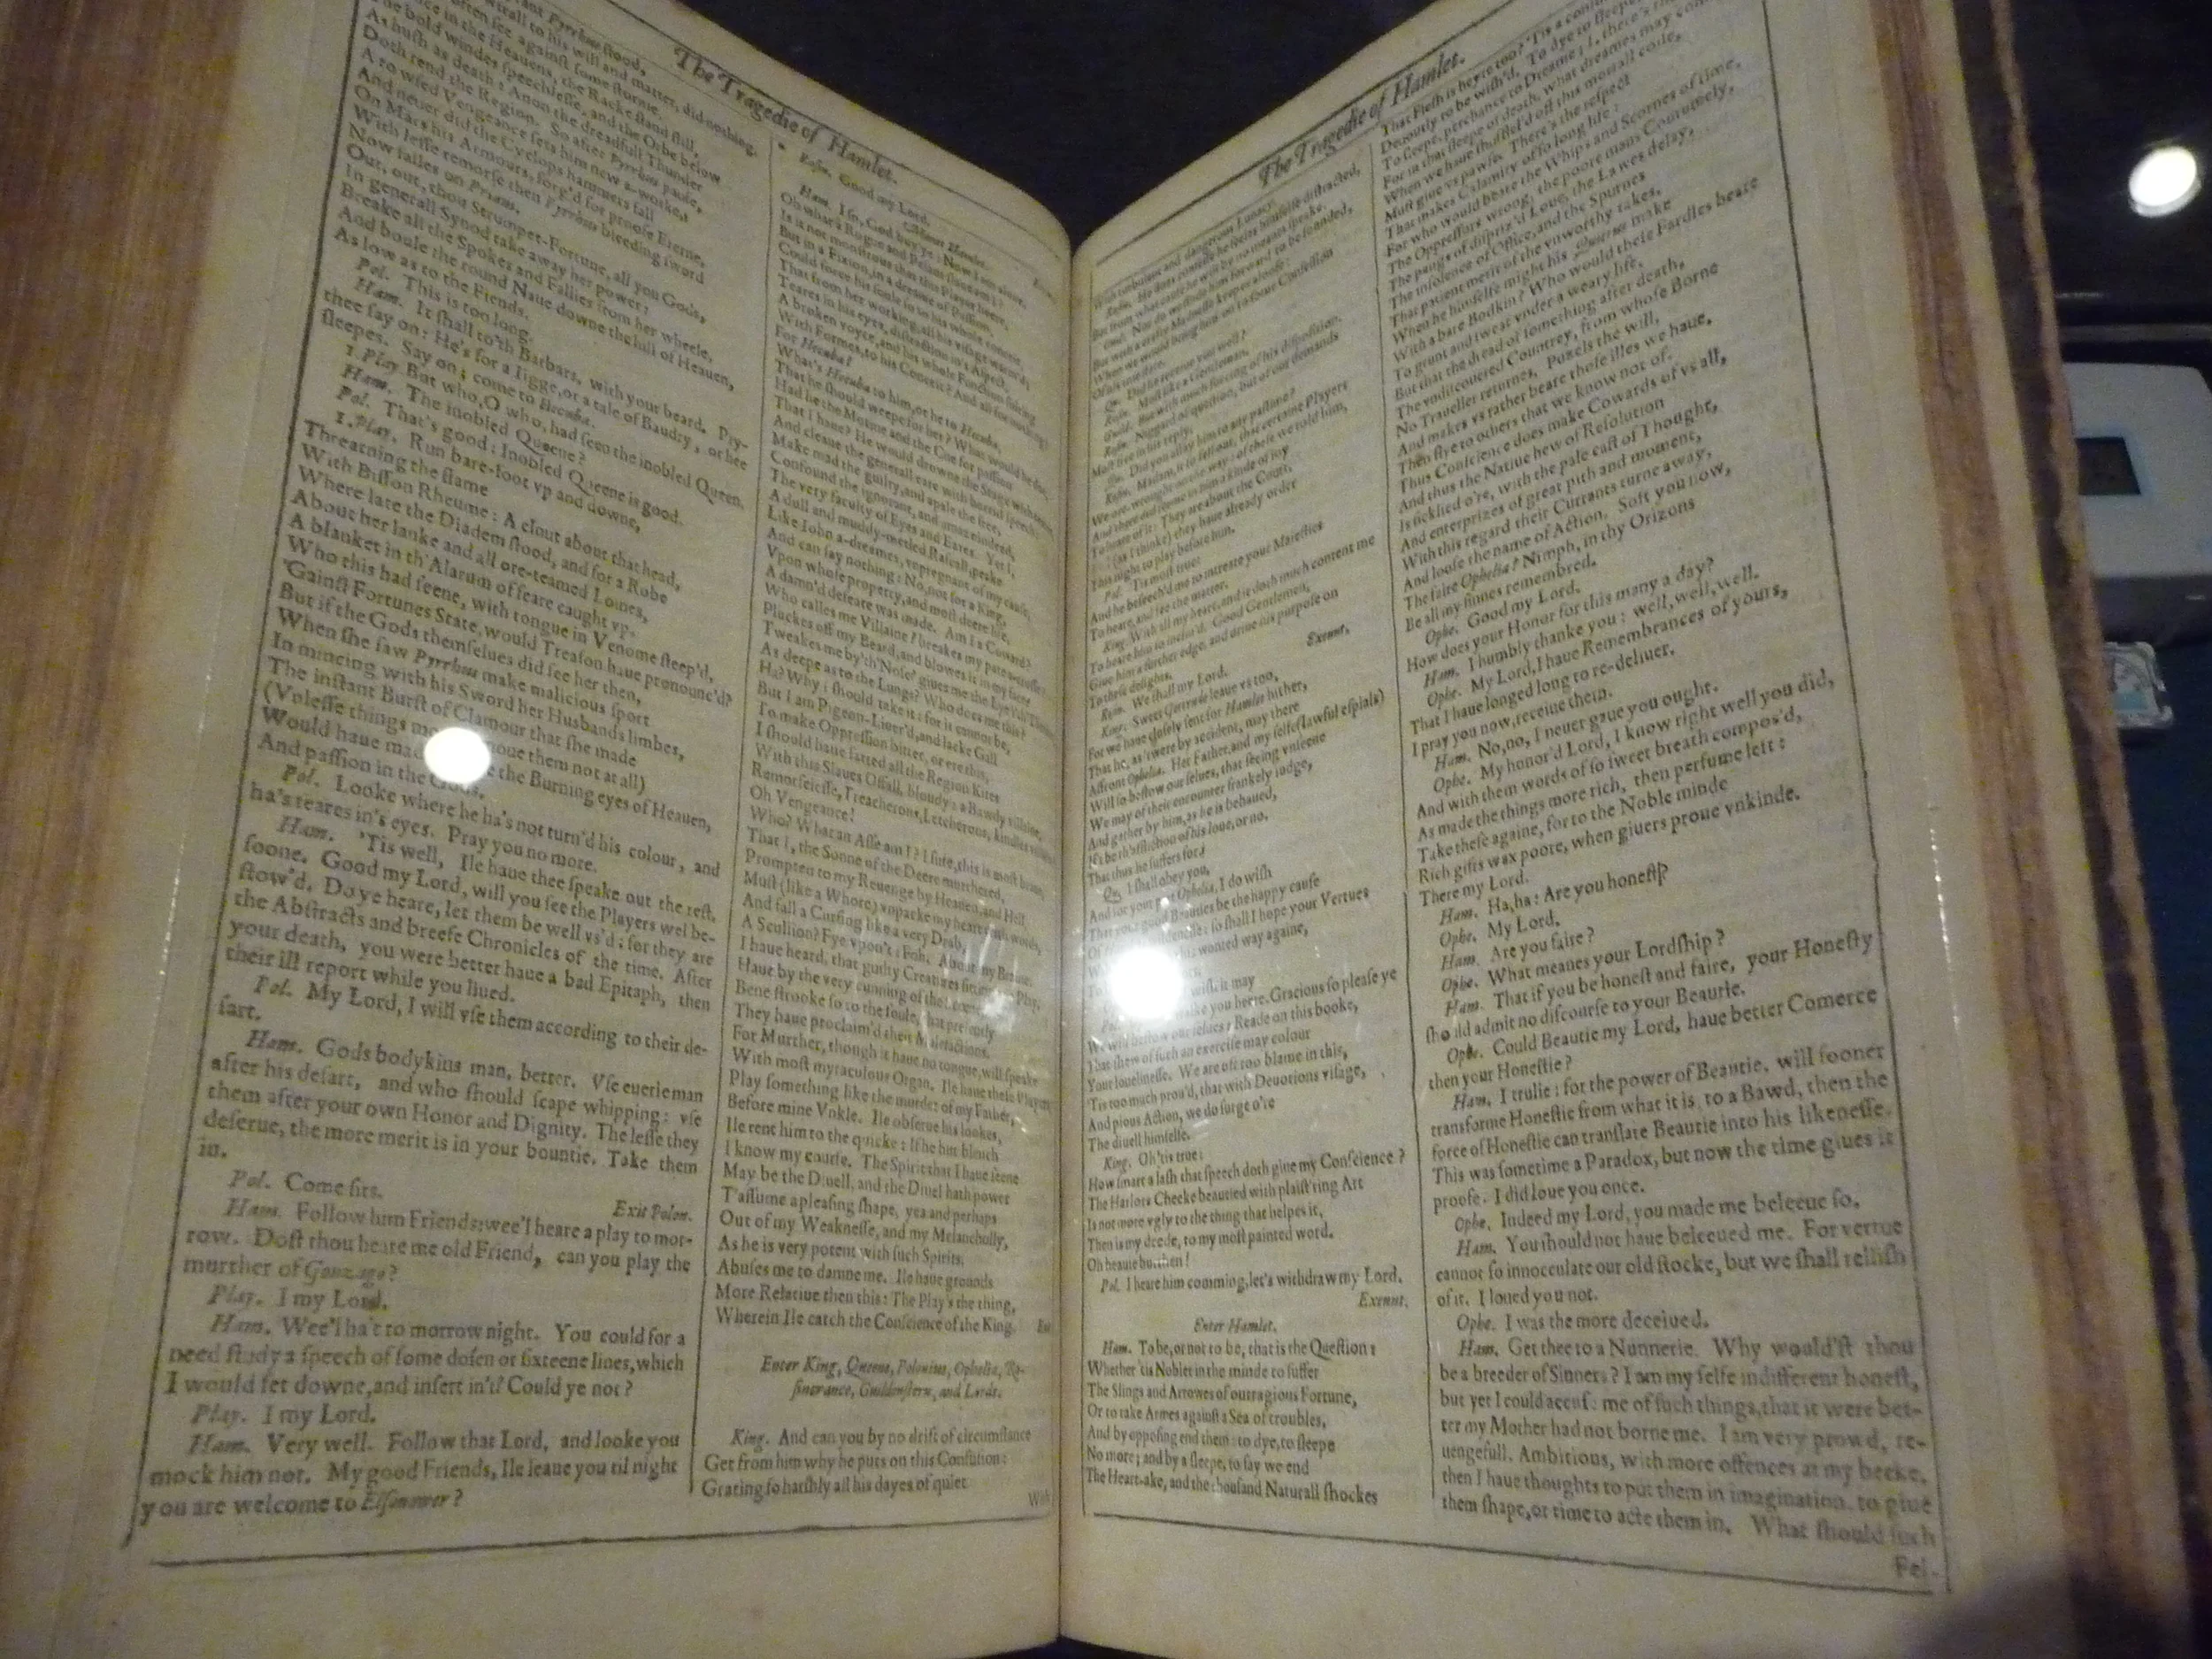 The Tragedie of Hamlet.
ſtood,
to his will and matter, did nothing.
often ſee againſt ſome ſtorme,
in the Heauens, the Racke ſtand ſtill,
The bold windes ſpeechleſſe, and the Orbe below
As huſh as death: Anon the dreadfull Thunder
Doth rend the Region. So after Pyrrhus pauſe,
A rowſed Vengeance ſets him new a-worke,
And neuer did the Cyclops hammers fall
On Mars his Armours, forg'd for proofe Eterne,
With leſſe remorſe then Pyrrhus bleeding ſword
Now falles on Priam.
Out, out, thou Strumpet-Fortune, all you Gods,
In generall Synod take away her power:
Breake all the Spokes and Fallies from her wheele,
And boule the round Naue downe the hill of Heauen,
As low as to the Fiends.
Pol. This is too long.
Ham. It ſhall to'th Barbars, with your beard. Pry-
thee ſay on: He's for a Iigge, or a tale of Baudry, or hee
ſleepes. Say on; come to Hecuba.
1. Play. But who, O who, had ſeen the inobled Queen.
Ham. The inobled Queene?
Pol. That's good: Inobled Queene is good.
1. Play. Run bare-foot vp and downe,
Threatning the flame
With Biſſon Rheume: A clout about that head,
Where late the Diadem ſtood, and for a Robe
About her lanke and all ore-teamed Loines,
A blanket in th'Alarum of feare caught vp.
Who this had ſeene, with tongue in Venome ſteep'd,
'Gainſt Fortunes State, would Treaſon haue pronounc'd?
But if the Gods themſelues did ſee her then,
When ſhe ſaw Pyrrhus make malicious ſport
In mincing with his Sword her Husbands limbes,
The inſtant Burſt of Clamour that ſhe made
(Vnleſſe things moue them not at all)
Would haue the Burning eyes of Heauen,
And paſſion in the Gods.
Pol. Looke where he ha's not turn'd his colour, and
ha's teares in's eyes. Pray you no more.
Ham. 'Tis well, Ile haue thee ſpeake out the reſt,
ſoone. Good my Lord, will you ſee the Players wel be-
ſtow'd. Do ye heare, let them be well vs'd: for they are
the Abſtracts and breefe Chronicles of the time. After
your death, you were better haue a bad Epitaph, then
their ill report while you liued.
Pol. My Lord, I will vſe them according to their de-
ſart.
Ham. Gods bodykins man, better. Vſe euerie man
after his deſart, and who ſhould ſcape whipping: vſe
them after your own Honor and Dignity. The leſſe they
deſerue, the more merit is in your bountie. Take them
in.
Pol. Come ſirs.
Exit Polon.
Ham. Follow him Friends: wee'l heare a play to mor-
row. Doſt thou heare me old Friend, can you play the
murther of Gonzago?
Play. I my Lord.
Ham. Wee'l ha't to morrow night. You could for a
need ſtudy a ſpeech of ſome doſen or ſixteene lines, which
I would ſet downe, and inſert in't? Could ye not?
Play. I my Lord.
Ham. Very well. Follow that Lord, and looke you
mock him not. My good Friends, Ile leaue you til night
you are welcome to Elſonower?
Roſin. Good my Lord.
Manet Hamlet.
Ham. I ſo, God buy'ye: Now I am alone.
Oh what a Rogue and Peſant ſlaue am I?
Is it not monſtrous that this Player heere,
But in a Fixion, in a dreame of Paſſion,
Could force his ſoule ſo to his whole conceit,
That from her working, all his viſage warm'd;
Teares in his eyes, diſtraction in's Aſpect,
A broken voyce, and his whole Function ſuiting
With Formes, to his Conceit? And all for nothing?
For Hecuba?
What's Hecuba to him, or he to Hecuba,
That he ſhould weepe for her? What would he doe,
Had he the Motiue and the Cue for paſſion
That I haue? He would drowne the Stage with teares,
And cleaue the generall eare with horrid ſpeech:
Make mad the guilty, and apale the free,
Confound the ignorant, and amaze indeed,
The very faculty of Eyes and Eares. Yet I,
A dull and muddy-metled Raſcall, peake
Like Iohn a-dreames, vnpregnant of my cauſe,
And can ſay nothing: No, not for a King,
Vpon whoſe property, and moſt deere life,
A damn'd defeate was made. Am I a Coward?
Who calles me Villaine? breakes my pate a-croſſe?
Pluckes off my Beard, and blowes it in my face?
Tweakes me by'th'Noſe? giues me the Lye i'th'Throate,
As deepe as to the Lungs? Who does me this?
Ha? Why I ſhould take it: for it cannot be,
But I am Pigeon-Liuer'd, and lacke Gall
To make Oppreſſion bitter, or ere this,
I ſhould haue fatted all the Region Kites
With this Slaues Offall, bloudy: a Bawdy villaine,
Remorſeleſſe, Treacherous, Letcherous, kindles villaine!
Oh Vengeance!
Who? What an Aſſe am I? I ſure, this is moſt braue,
That I, the Sonne of the Deere murthered,
Prompted to my Reuenge by Heauen, and Hell,
Muſt (like a Whore) vnpacke my heart with words,
And fall a Curſing like a very Drab,
A Scullion? Fye vpon't: Foh. About my Braine.
I haue heard, that guilty Creatures ſitting at a Play,
Haue by the very cunning of the Scoene,
Bene ſtrooke ſo to the ſoule, that preſently
They haue proclaim'd their Malefactions.
For Murther, though it haue no tongue, will ſpeake
With moſt myraculous Organ. Ile haue theſe Players,
Play ſomething like the murder of my Father,
Before mine Vnkle. Ile obſerue his lookes,
Ile rent him to the quicke: If he but blench
I know my courſe. The Spirit that I haue ſeene
May be the Diuell, and the Diuel hath power
T'aſſume a pleaſing ſhape, yea and perhaps
Out of my Weakneſſe, and my Melancholly,
As he is very potent with ſuch Spirits,
Abuſes me to damne me. Ile haue grounds
More Relatiue then this: The Play's the thing,
Wherein Ile catch the Conſcience of the King.
Enter King, Queene, Polonius, Ophelia, Ro-
ſincrance, Guildenſtern, and Lords.
King. And can you by no drift of circumſtance
Get from him why he puts on this Confuſion:
Grating ſo harſhly all his dayes of quiet
With
The Tragedie of Hamlet.
With turbulent and dangerous Lunacy.
Roſin. He does confeſſe he feeles himſelfe diſtracted,
But from what cauſe he will by no meanes ſpeake.
Guil. Nor do we finde him forward to be ſounded,
But with a crafty Madneſſe keepes aloofe:
When we would bring him on to ſome Confeſſion
Of his true ſtate.
Qu. Did he receiue you well?
Roſin. Moſt like a Gentleman.
Guild. But with much forcing of his diſpoſition.
Roſin. Niggard of queſtion, but of our demands
Moſt free in his reply.
Qu. Did you aſſay him to any paſtime?
Roſin. Madam, it ſo fell out, that certaine Players
We ore-wrought on the way: of theſe we told him,
And there did ſeeme in him a kinde of ioy
To heare of it: They are about the Court,
And (as I thinke) they haue already order
This night to play before him.
Pol. 'Tis moſt true:
And he beſeech'd me to intreate your Maieſties
To heare, and ſee the matter.
King. With all my heart, and it doth much content me
To heare him ſo inclin'd. Good Gentlemen,
Giue him a further edge, and driue his purpoſe on
To theſe delights.
Roſin. We ſhall my Lord.
Exeunt.
King. Sweet Gertrude leaue vs too,
For we haue cloſely ſent for Hamlet hither,
That he, as 'twere by accident, may there
Affront Ophelia. Her Father, and my ſelfe (lawful eſpials)
Will ſo beſtow our ſelues, that ſeeing vnſeene
We may of their encounter frankely iudge,
And gather by him, as he is behaued,
If't be th'affliction of his loue, or no,
That thus he ſuffers for.
Qu. I ſhall obey you,
And for your part Ophelia, I do wiſh
That your good Beauties be the happy cauſe
Of wildeneſſe: ſo ſhall I hope your Vertues
his wonted way againe,
wiſh it may
walke you heere. Gracious ſo pleaſe ye
We will beſtow our ſelues: Reade on this booke,
That ſhew of ſuch an exerciſe may colour
Your lonelineſſe. We are oft too blame in this,
'Tis too much prou'd, that with Deuotions viſage,
And pious Action, we do ſurge o're
The diuell himſelfe.
King. Oh 'tis true:
How ſmart a laſh that ſpeech doth giue my Conſcience?
The Harlots Cheeke beautied with plaiſt'ring Art
Is not more vgly to the thing that helpes it,
Then is my deede, to my moſt painted word.
Oh heauie burthen!
Pol. I heare him comming, let's withdraw my Lord.
Exeunt.
Enter Hamlet.
Ham. To be, or not to be, that is the Queſtion:
Whether 'tis Nobler in the minde to ſuffer
The Slings and Arrowes of outragious Fortune,
Or to take Armes againſt a Sea of troubles,
And by oppoſing end them: to dye, to ſleepe
No more; and by a ſleepe, to ſay we end
The Heart-ake, and the thouſand Naturall ſhockes
That Fleſh is heyre too? 'Tis a
Deuoutly to be wiſh'd. To dye to ſleepe,
To ſleepe, perchance to Dreame; I, there's the
For in that ſleepe of death, what dreames may come,
When we haue ſhuffel'd off this mortall coile,
Muſt giue vs pawſe. There's the reſpect
That makes Calamity of ſo long life:
For who would beare the Whips and Scornes of time,
The Oppreſſors wrong, the poore mans Contumely,
The pangs of diſpriz'd Loue, the Lawes delay,
The inſolence of Office, and the Spurnes
That patient merit of the vnworthy takes,
When he himſelfe might his Quietus make
With a bare Bodkin? Who would theſe Fardles beare
To grunt and ſweat vnder a weary life,
But that the dread of ſomething after death,
The vndiſcouered Countrey, from whoſe Borne
No Traueller returnes, Puzels the will,
And makes vs rather beare thoſe illes we haue,
Then flye to others that we know not of.
Thus Conſcience does make Cowards of vs all,
And thus the Natiue hew of Reſolution
Is ſicklied o're, with the pale caſt of Thought,
And enterprizes of great pith and moment,
With this regard their Currants turne away,
And looſe the name of Action. Soft you now,
The faire Ophelia? Nimph, in thy Orizons
Be all my ſinnes remembred.
Ophe. Good my Lord,
How does your Honor for this many a day?
Ham. I humbly thanke you: well, well, well.
Ophe. My Lord, I haue Remembrances of yours,
That I haue longed long to re-deliuer.
I pray you now, receiue them.
Ham. No, no, I neuer gaue you ought.
Ophe. My honor'd Lord, I know right well you did,
And with them words of ſo ſweet breath compos'd,
As made the things more rich, then perfume left:
Take theſe againe, for to the Noble minde
Rich gifts wax poore, when giuers proue vnkinde.
There my Lord.
Ham. Ha, ha: Are you honeſt?
Ophe. My Lord.
Ham. Are you faire?
Ophe. What meanes your Lordſhip?
Ham. That if you be honeſt and faire, your Honeſty
ſhould admit no diſcourſe to your Beautie.
Ophe. Could Beautie my Lord, haue better Comerce
then your Honeſtie?
Ham. I trulie: for the power of Beautie, will ſooner
transforme Honeſtie from what it is, to a Bawd, then the
force of Honeſtie can tranſlate Beautie into his likeneſſe.
This was ſometime a Paradox, but now the time giues it
proofe. I did loue you once.
Ophe. Indeed my Lord, you made me beleeue ſo.
Ham. You ſhould not haue beleeued me. For vertue
cannot ſo innocculate our old ſtocke, but we ſhall relliſh
of it. I loued you not.
Ophe. I was the more deceiued.
Ham. Get thee to a Nunnerie. Why would'ſt thou
be a breeder of Sinners? I am my ſelfe indifferent honeſt,
but yet I could accuſe me of ſuch things, that it were bet-
ter my Mother had not borne me. I am very prowd, re-
uengefull, Ambitious, with more offences at my becke,
then I haue thoughts to put them in imagination, to giue
them ſhape, or time to acte them in. What ſhould ſuch
Fel-